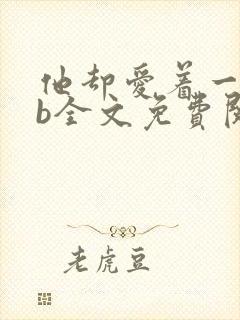 他却爱着一
b全文免费阅
老虎豆